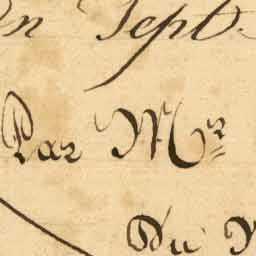 en Sept.
Par Mr
Du